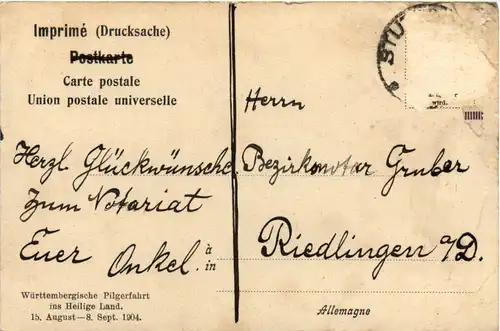 Imprimé (Drucksache)
Postkarte
Carte postale
Union postale universelle
STU
wird.
Herrn
Herzl. Glückwünsche
zum Notariat
Euer Onkel.
Bezirksnotar Gruber
à
in
Riedlingen a/D.
Württembergische Pilgerfahrt
ins Heilige Land.
15. August—8. Sept. 1904.
Allemagne